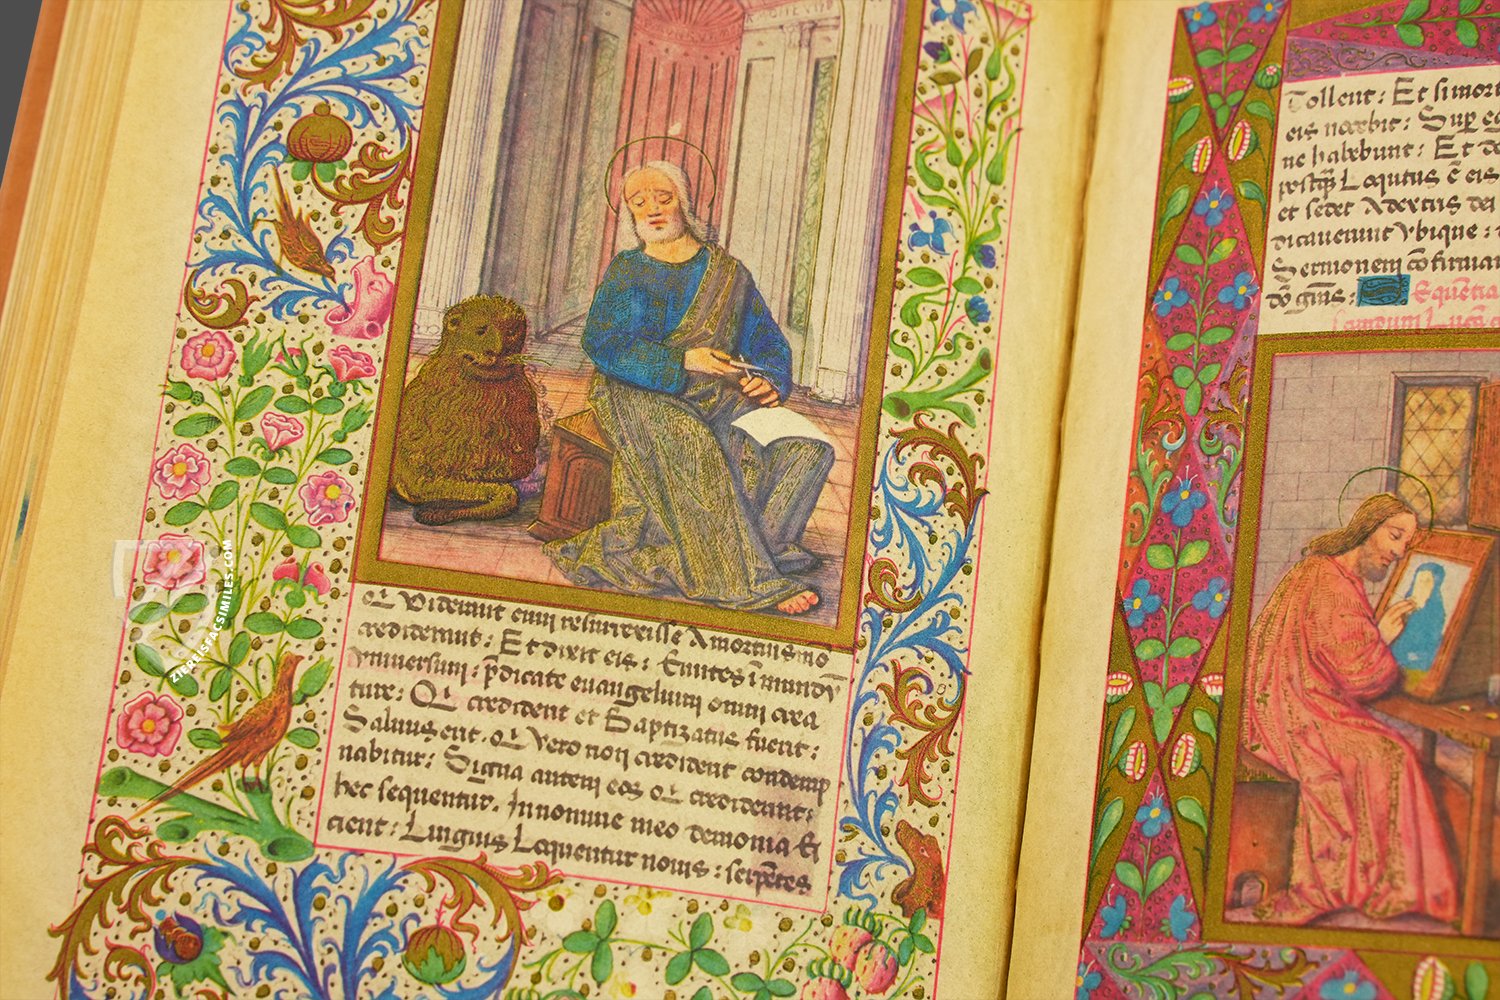 qı Viderant eum resurrexisse A mortuis no
crediderunt: Et dixit eis: Euntes ī mundū
vniuersum: p̄dicate euangelium omni crea
ture: Qı crediderit et Baptizatus fuerit:
Saluus erit. qı Vero non crediderit condemp
nabitur: Signa autem eos qı crediderunt:
hec sequentur. In nomine meo demonia Ei
cient: Linguis Loquentur nouis: serpētes
Tollent: Et si mort
eis nocebit: Sup eg
ne habebunt: Et do
postq̄ Loqutus ē eis
et sedet A dextris dei
dicauerunt Vbique:
Sermonem cōfirman
tib' signis: Equētia
ZIERLISFACSIMILES.COM